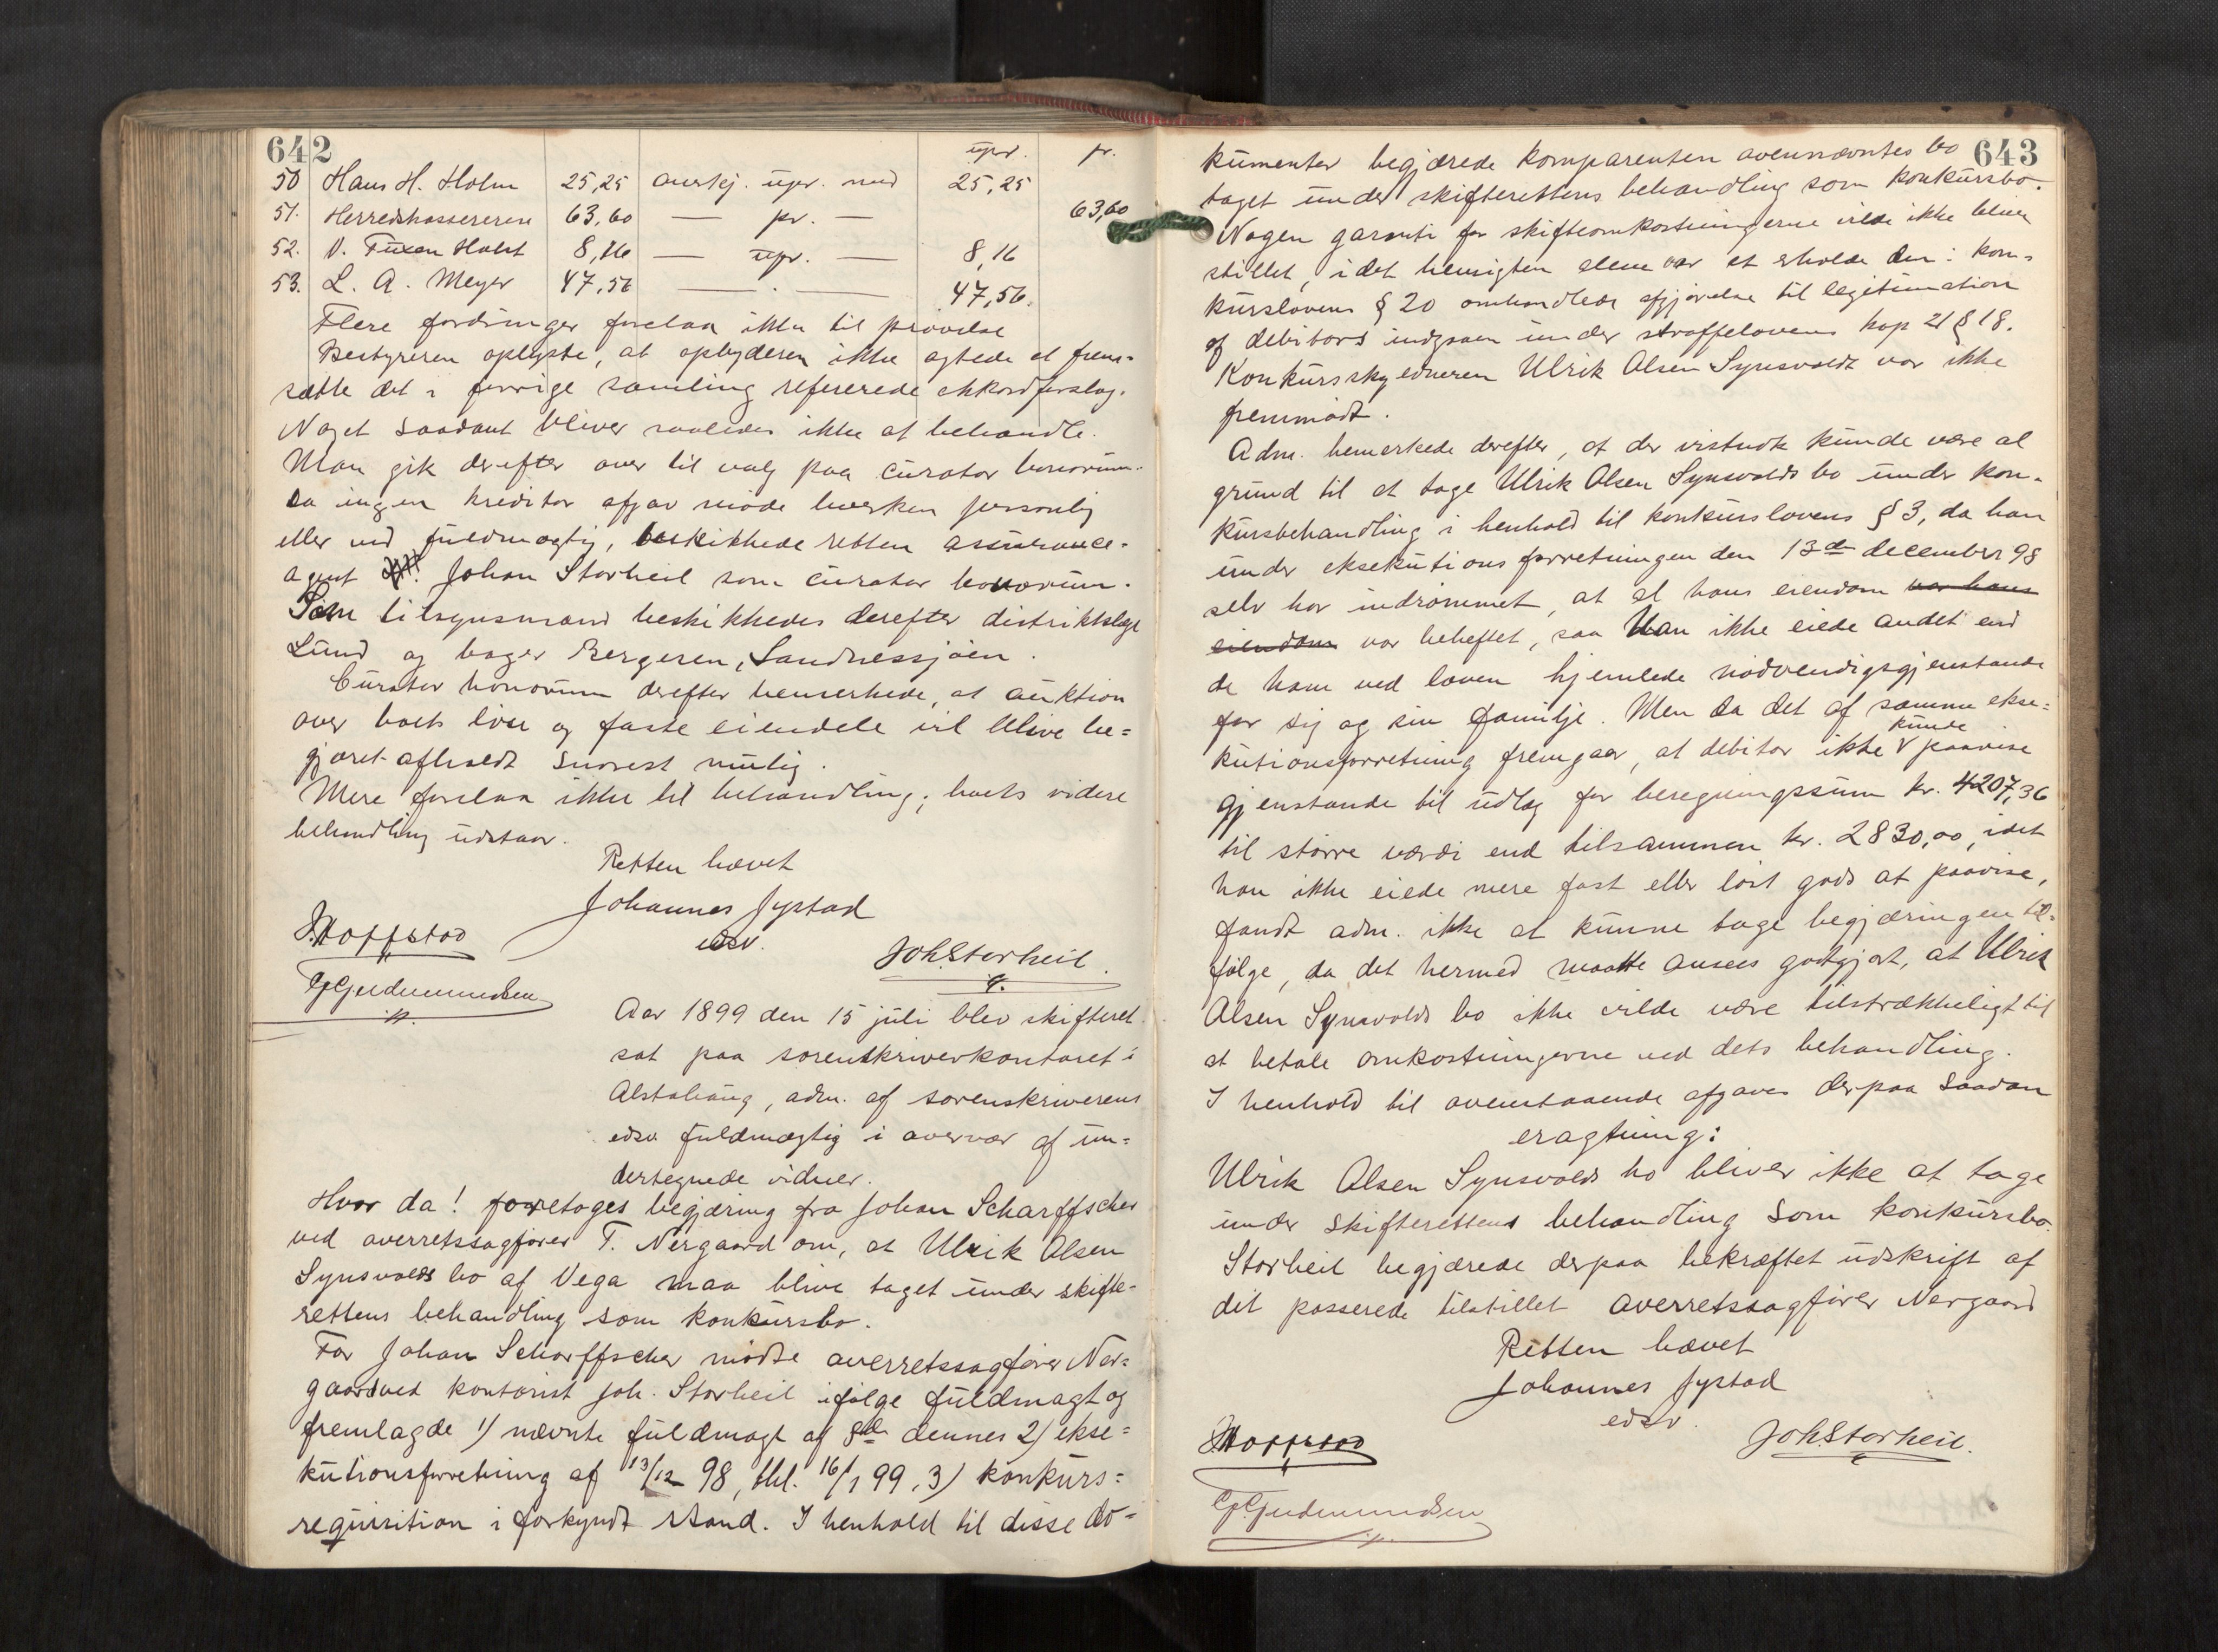 642
upr. pr.
50 Hans H. Holm 25,25 anerkj. upr. med 25,25
51. Herredskassereren 63,60 — pr. — 63,60
52. V. Fuxen Holst 8,16 — upr. — 8,16
53. L. A. Meyer 47,56 — . — 47,56.
Flere fordringer forelaa ikke til prøvelse
Bestyreren oplyste, at opbyderen ikke agtede at frem=
sætte det i forrige samling refererede akkordforslag.
Noget saadant bliver saaledes ikke at behandle.
Man gik derefter over til valg paa curator bonorum.
Da ingen kreditor afgav møde hverken personlig
eller ved fuldmægtig, beskikkede retten assurance-
agent Johan Storheil som curator bonorum.
Som tilsynsmænd beskikkedes derefter distriktslæge
Lund og bager Bergersen, Sandnessjøen.
Curator bonorum derefter bemerkede, at auktion
over boets løse og faste eiendele vil blive be=
gjæret afholdt snarest mulig.
Mere forelaa ikke til behandling; boets videre
behandling udstaar.
Retten hævet
Johannes Jystad
edsv.
J. Hoffstad
JohStorheil.
G Gudmundsen
Aar 1899 den 15 juli blev skifteret
sat paa sorenskriverkontoret i
Alstahaug, adm. af sorenskriverens
edsv. fuldmægtig i overvær af un=
dertegnede vidner.
Hvor da! foretoges begjæring fra Johan Scharffscher
ved overretssagfører T. Nergaard om, at Ulrik Olsen
Synsvolds bo af Vega maa blive taget under skifte-
rettens behandling som konkursbo.
For Johan Scharffscher mødte overretssagfører Ner=
gaard ved kontorist Joh. Storheil ifølge fuldmagt og
fremlagde 1) nævnte fuldmagt af 8de dennes 2) ekse=
kutionsforretning af 13/12 98, thl. 16/1 99, 3) konkurs=
requisition i forkyndt stand. I henhold til disse do=
643
kumenter begjærede komparenten ovennævntes bo
taget under skifterettens behandling som konkursbo.
Nogen garanti for skifteomkostningerne vilde ikke blive
stillet, idet hensigten alene var at erholde den i kon=
kurslovens § 20 omhandlede afgjørelse til legitimation
af debitors indgaaen under straffelovens kap 21 § 18.
Konkursskyldneren Ulrik Olsen Synsvoldt var ikke
fremmødt.
Adm. bemerkede derefter, at der vistnok kunde være al
grund til at tage Ulrik Olsen Synsvolds bo under kon-
kursbehandling i henhold til konkurslovens § 3, da han
under eksekutionsforretningen den 13de december 98
selv har indrømmet, at al hans eiendom var hans
eiendom var beheftet, saa han ikke eiede andet end
de ham ved loven hjemlede nødvendigsgjenstande
for sig og sin familje. Men da det af samme ekse=
kutionsforretning fremgaar, at debitor ikke kunde paavise
gjenstande til udlæg for beregningssum kr. 4207,36
til større værdi end tilsammen kr. 2830,00, idet
han ikke eiede mere fast eller løst gods at paavise,
fandt adm. ikke at kunne tage begjæringen til-
følge, da det hermed maatte ansees godtgjort, at Ulrik
Olsen Synsvolds bo ikke vilde være tilstrækkeligt til
at betale omkostningerne ved dets behandling.
I henhold til ovenstaaende afgaves derpaa saadan
eragtning:
Ulrik Olsen Synsvolds bo bliver ikke at tage
under skifterettens behandling som konkursbo.
Storheil begjærede derpaa bekræftet udskrift af
det passerede tilstillet overretssagfører Nergaard
Retten hævet
Johannes Jystad
edsv.
J. Hoffstad
JohStorheil.
G Gudmundsen